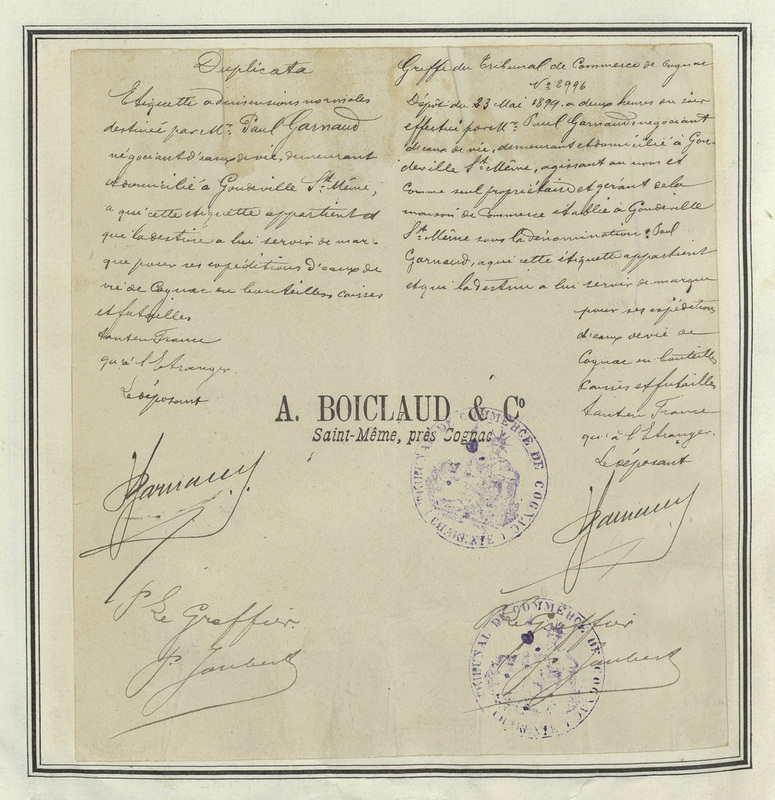 Duplicata
Etiquette a dimensions normales
destinée par Mr. Paul Garnaud
négociant d'eaux de vie, demeurant
et domicilié à Gondeville St. Même,
a qui cette etiquette appartient et
qui la destine a lui servir de mar-
que pour ses expéditions d'eaux de
vie de Cognac en bouteilles caisses
et futailles
tant en France
qu'à l'Etranger.
Le déposant
Garnaud
P. Le Greffier
P. Joubert
Greffe du Tribunal de Commerce de Cognac
No 2996
Dépôt du 23 Mai 1899. a deux heures du soir
effectué par Mr. Paul Garnaud, négociant
d'eaux de vie, demeurant et domicilié à Gon-
deville St. Même, agissant au nom et
comme seul propriétaire et gérant de la
maison de Commerce établie à Gondeville
St. Même sous la dénomination: Paul
Garnaud, a qui cette étiquette appartient
et qui la destine a lui servir de marque
pour ses expéditions
d'eaux de vie de
Cognac en bouteilles
caisses et futailles
tant en France
qu'à l'Etranger.
Le déposant
Garnaud
P. Le Greffier
P. Joubert
A. BOICLAUD & Co
Saint-Même, près Cognac
TRIBUNAL DE COMMERCE DE COGNAC
(CHARENTE)
TRIBUNAL DE COMMERCE DE COGNAC
(CHARENTE)